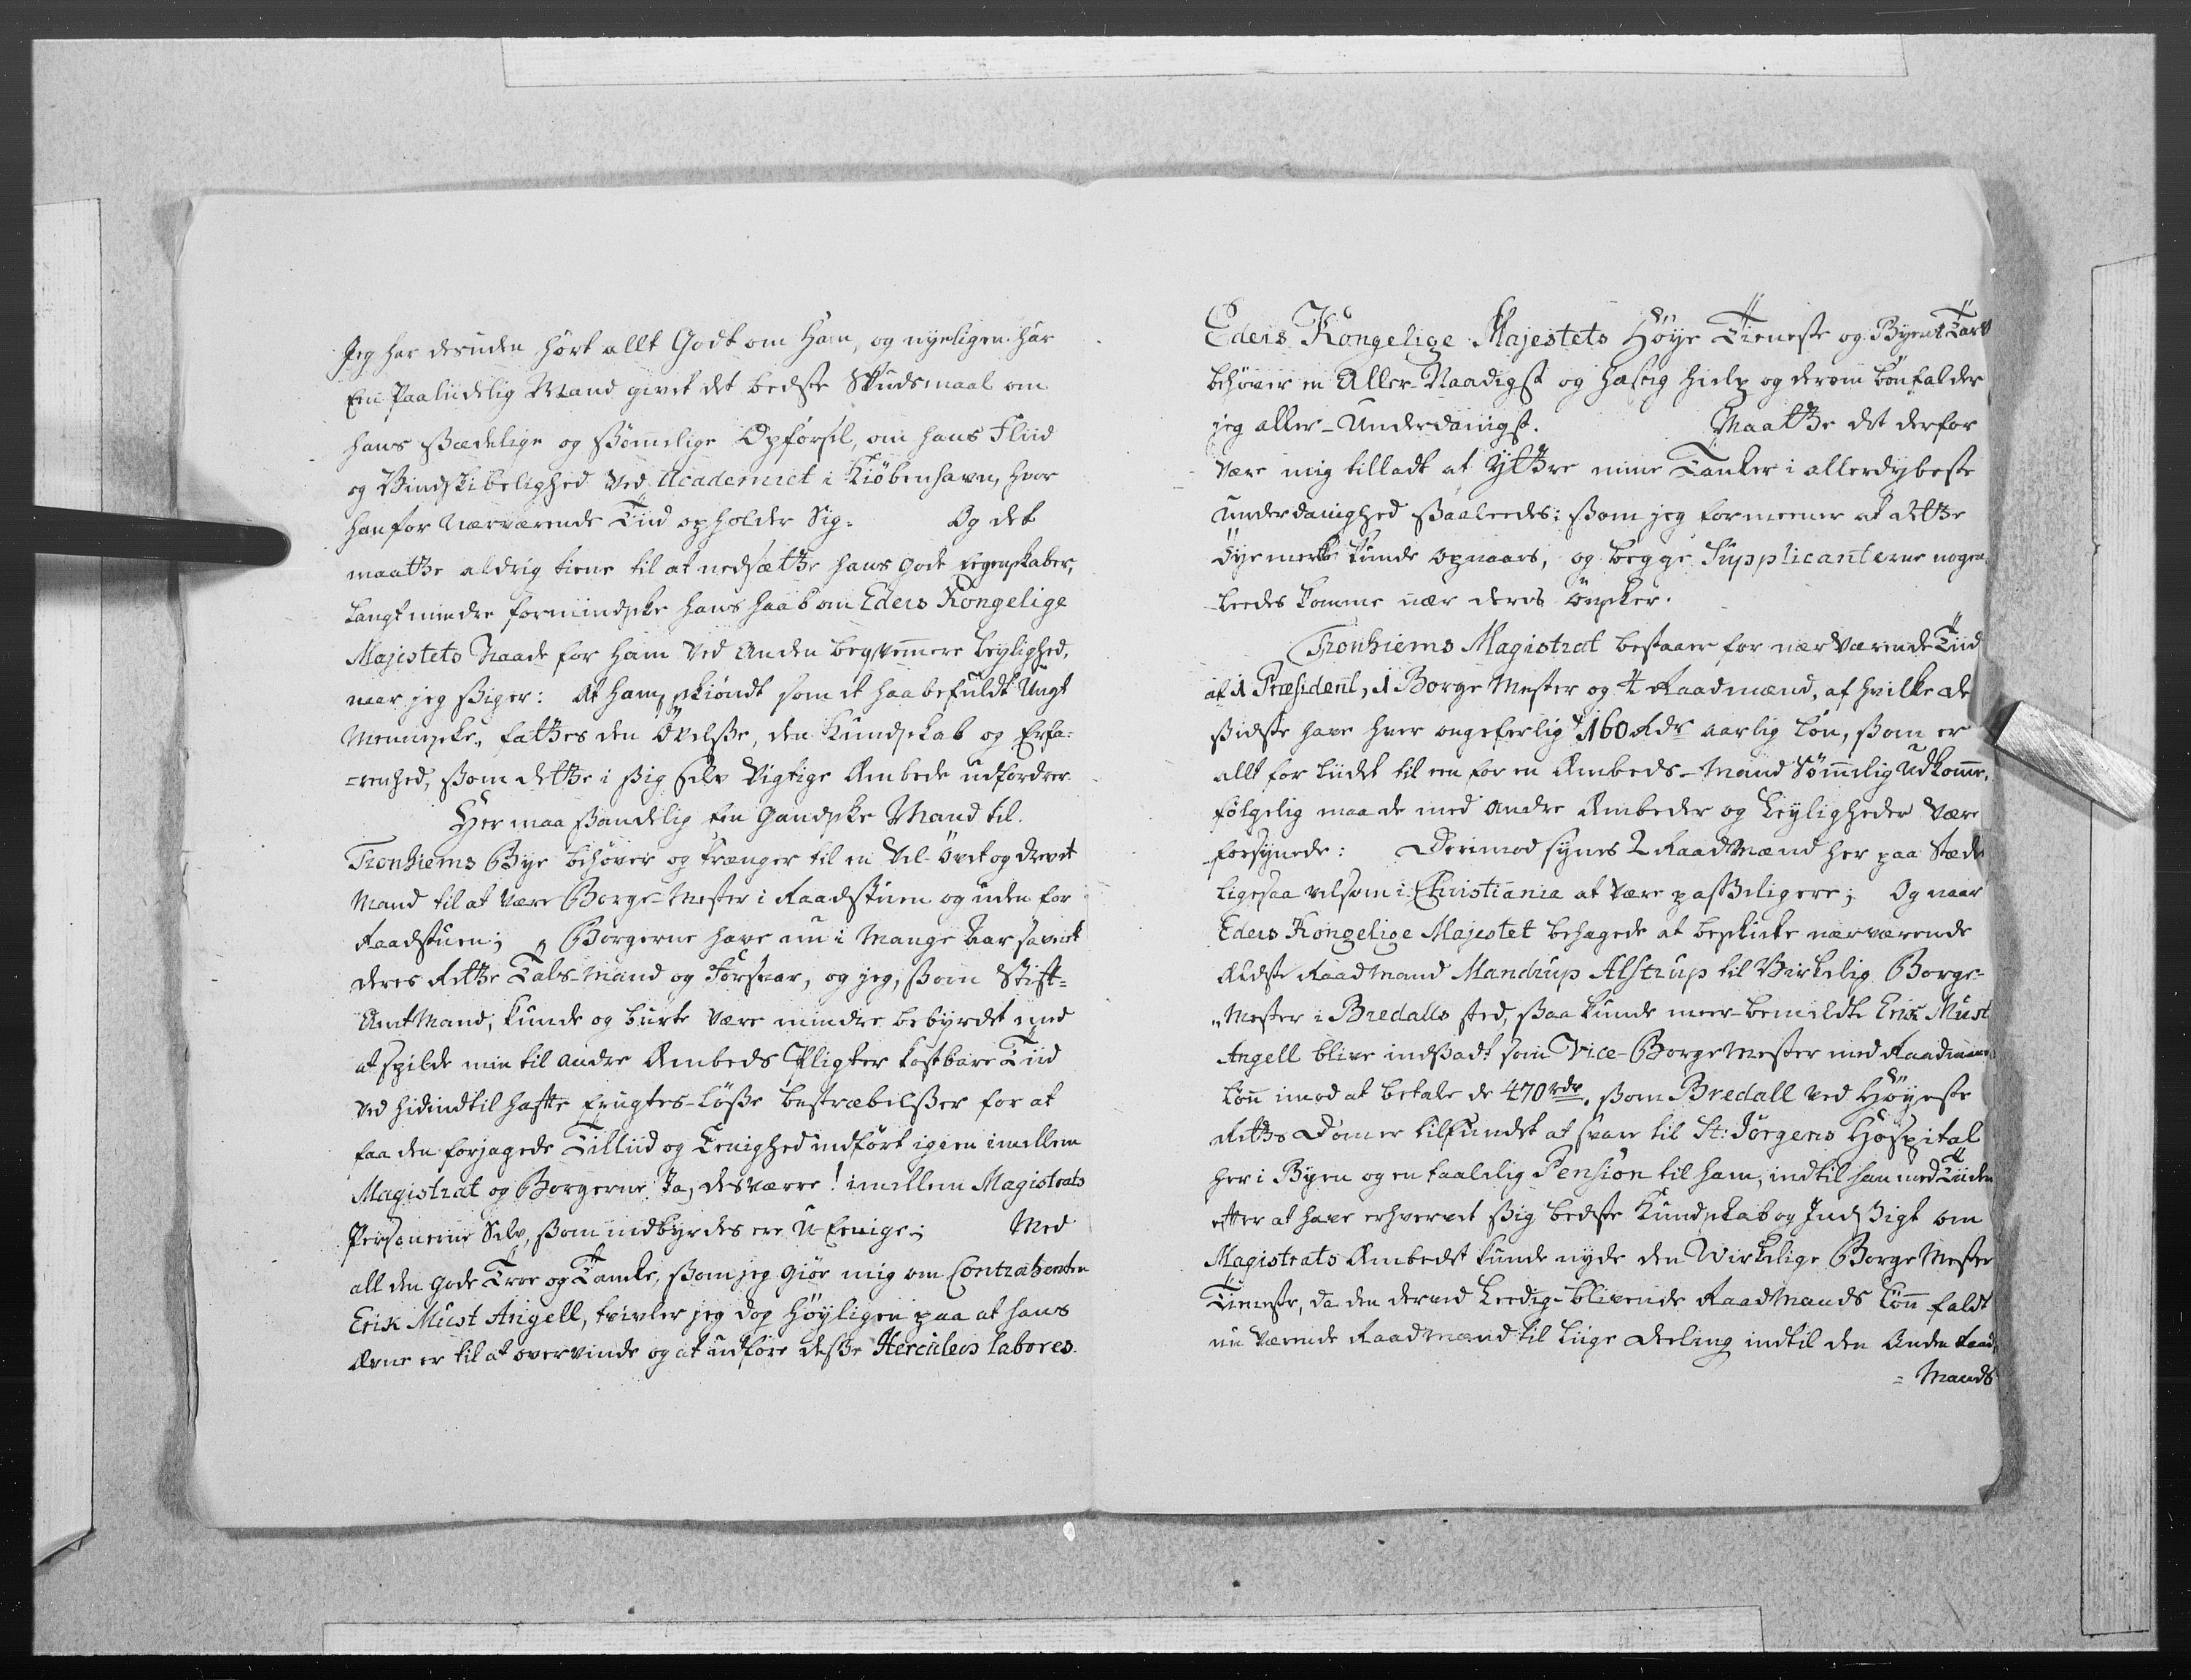 Jeg har desuden hört allt Godt om Ham, og nyeligen har
Een Paalidelig Mand givet det bedste Skudsmaal om
hans sædelige og sömelige Opförsel, om hans Fliid
og Vindskibelighed ved Academiet i Kiöbenhavn, hvor
han for Nærværende Tiid opholder Sig. Og det
maatte aldrig tiene til at nedsætte hans gode Egenskaber,
langt mindre formindske hans haab om Eders Kongelige
Majestets Naade for ham ved Anden beqvemmere leylighed,
naar jeg siger: At ham, skiöndt som et haabefuldt Ungt
Menniske, fattes den Övelse, den Kundskab og Erfa=
=renhed, som dette i sig selv Vigtige Embede udfordrer
Her maa sandelig Een Gandske Mand til.
Tronhiems Bye behöver og trænger til en Vel-övet og drevet
Mand til at være Borge-Mester i Raadstuen og uden for
Raadstuen; Borgerne have nu i Mange Aar savnet
deres Rette Tals-Mand og Forsvar, og jeg, som Stift=
Amt Mand, kunde og burte være mindre bebyrdet med
at spilde min til andre Embeds Pligter kostbare Tiid
ved hidindtil hafte frugtes-löse bestræbelser for at
faa den forjagede Tilliid og Eenighed indfört igien imellem
Magistrat og Borgerne Ja, desværre! imellem Magistrats
Personerne Selv, som indbyrdes ere U-Eenige; Med
all den gode Troe og Tanke, som jeg giör mig om Contrahenten
Erik Must Angell, tvivler jeg dog höyligen paa at hans
Ævne er til at overvinde og at udföre desse Herculeos labores.
Eders Kongelige Majestets Höye Tieneste og Byens Tarv
behöver en Aller-Naadigst og hastig hielp og derom bönfalder
jeg aller-Underdanigst. Maatte det derfor
være mig tilladt at Yttre mine Tanker i allerdybeste
underdanighed saaleedes; som jeg formeener at dette
Öyemerke kunde opnaaes, og begge Supplicanterne nogen-
leedes komme nær deres Önsker.
Tronhiems Magistrat bestaaer for nærværende Tiid
af 1 Præsident, 1 Borge Mester og 4 Raadmænd, af hvilke de
sidste have hver ongeferlig 160 Rdr aarlig lön, som er
allt for lidet til een for en Embeds-Mand Sömmelig Udkomme,
fölgelig maa de med andre Embeder og Leyligheder være
forsynede: Derimod synes 2 Raadmænd her paa Stædet
ligesaa vel som i Christiania at være passeligere; Og naar
Eders Kongelige Majestet behagede at beskikke nærværende
Ældste Raadmand Mandrup Alstrup til Virkelig Borge-
Mester i Bredalls sted, saa kunde meer-bemeldte Erik Must
Angell blive indsadt som Vice-Borge Mester med Raadmands
lön imod at betale de 470 rdr, som Bredall ved Höyeste
Retts Dom er tilfundet at svare til St: Jörgens Hospital
her i Byen og en taalelig Pension til ham, indtil han med Tiiden
efter at have erhvervet sig bedste Kundskab og Indsigt om
Magistrats Embedet kunde nyde den Wirkelige Borge Mester
Tieneste, da den derved leedig-blivende Raadmands lön faldt
nu værende Raadmænd til liige Deeling indtil den Anden Raad
=Mands